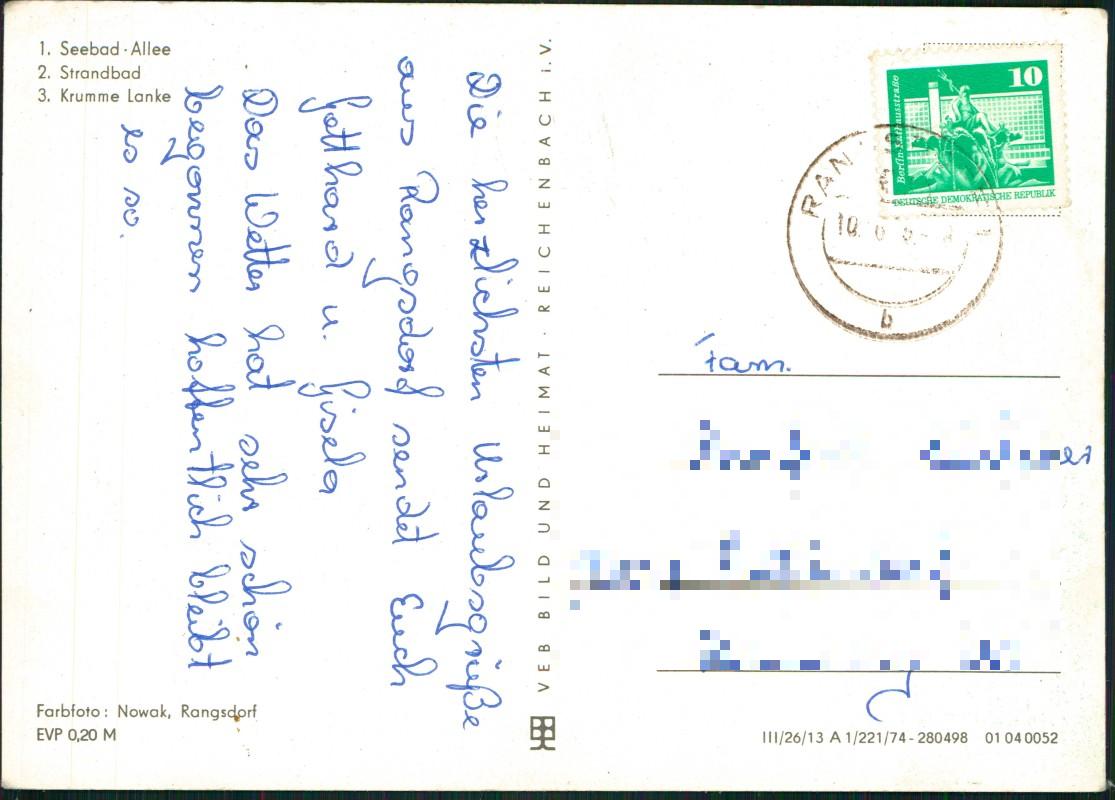 1. Seebad-Allee
2. Strandbad
3. Krumme Lanke
Die herzlichsten Urlaubsgrüße
aus Rangsdorf sendet Euch
Gotthard u. Gisela
Das Wetter hat sehr schön
begonnen hoffentlich bleibt
es so.
Farbfoto: Nowak, Rangsdorf
EVP 0,20 M
VEB BILD UND HEIMAT · REICHENBACH i.V.
10
Berlin-Rathausstraße
DEUTSCHE DEMOKRATISCHE REPUBLIK
RAN
10
b
Fam.
III/26/13 A 1/221/74-280498 01 04 0052